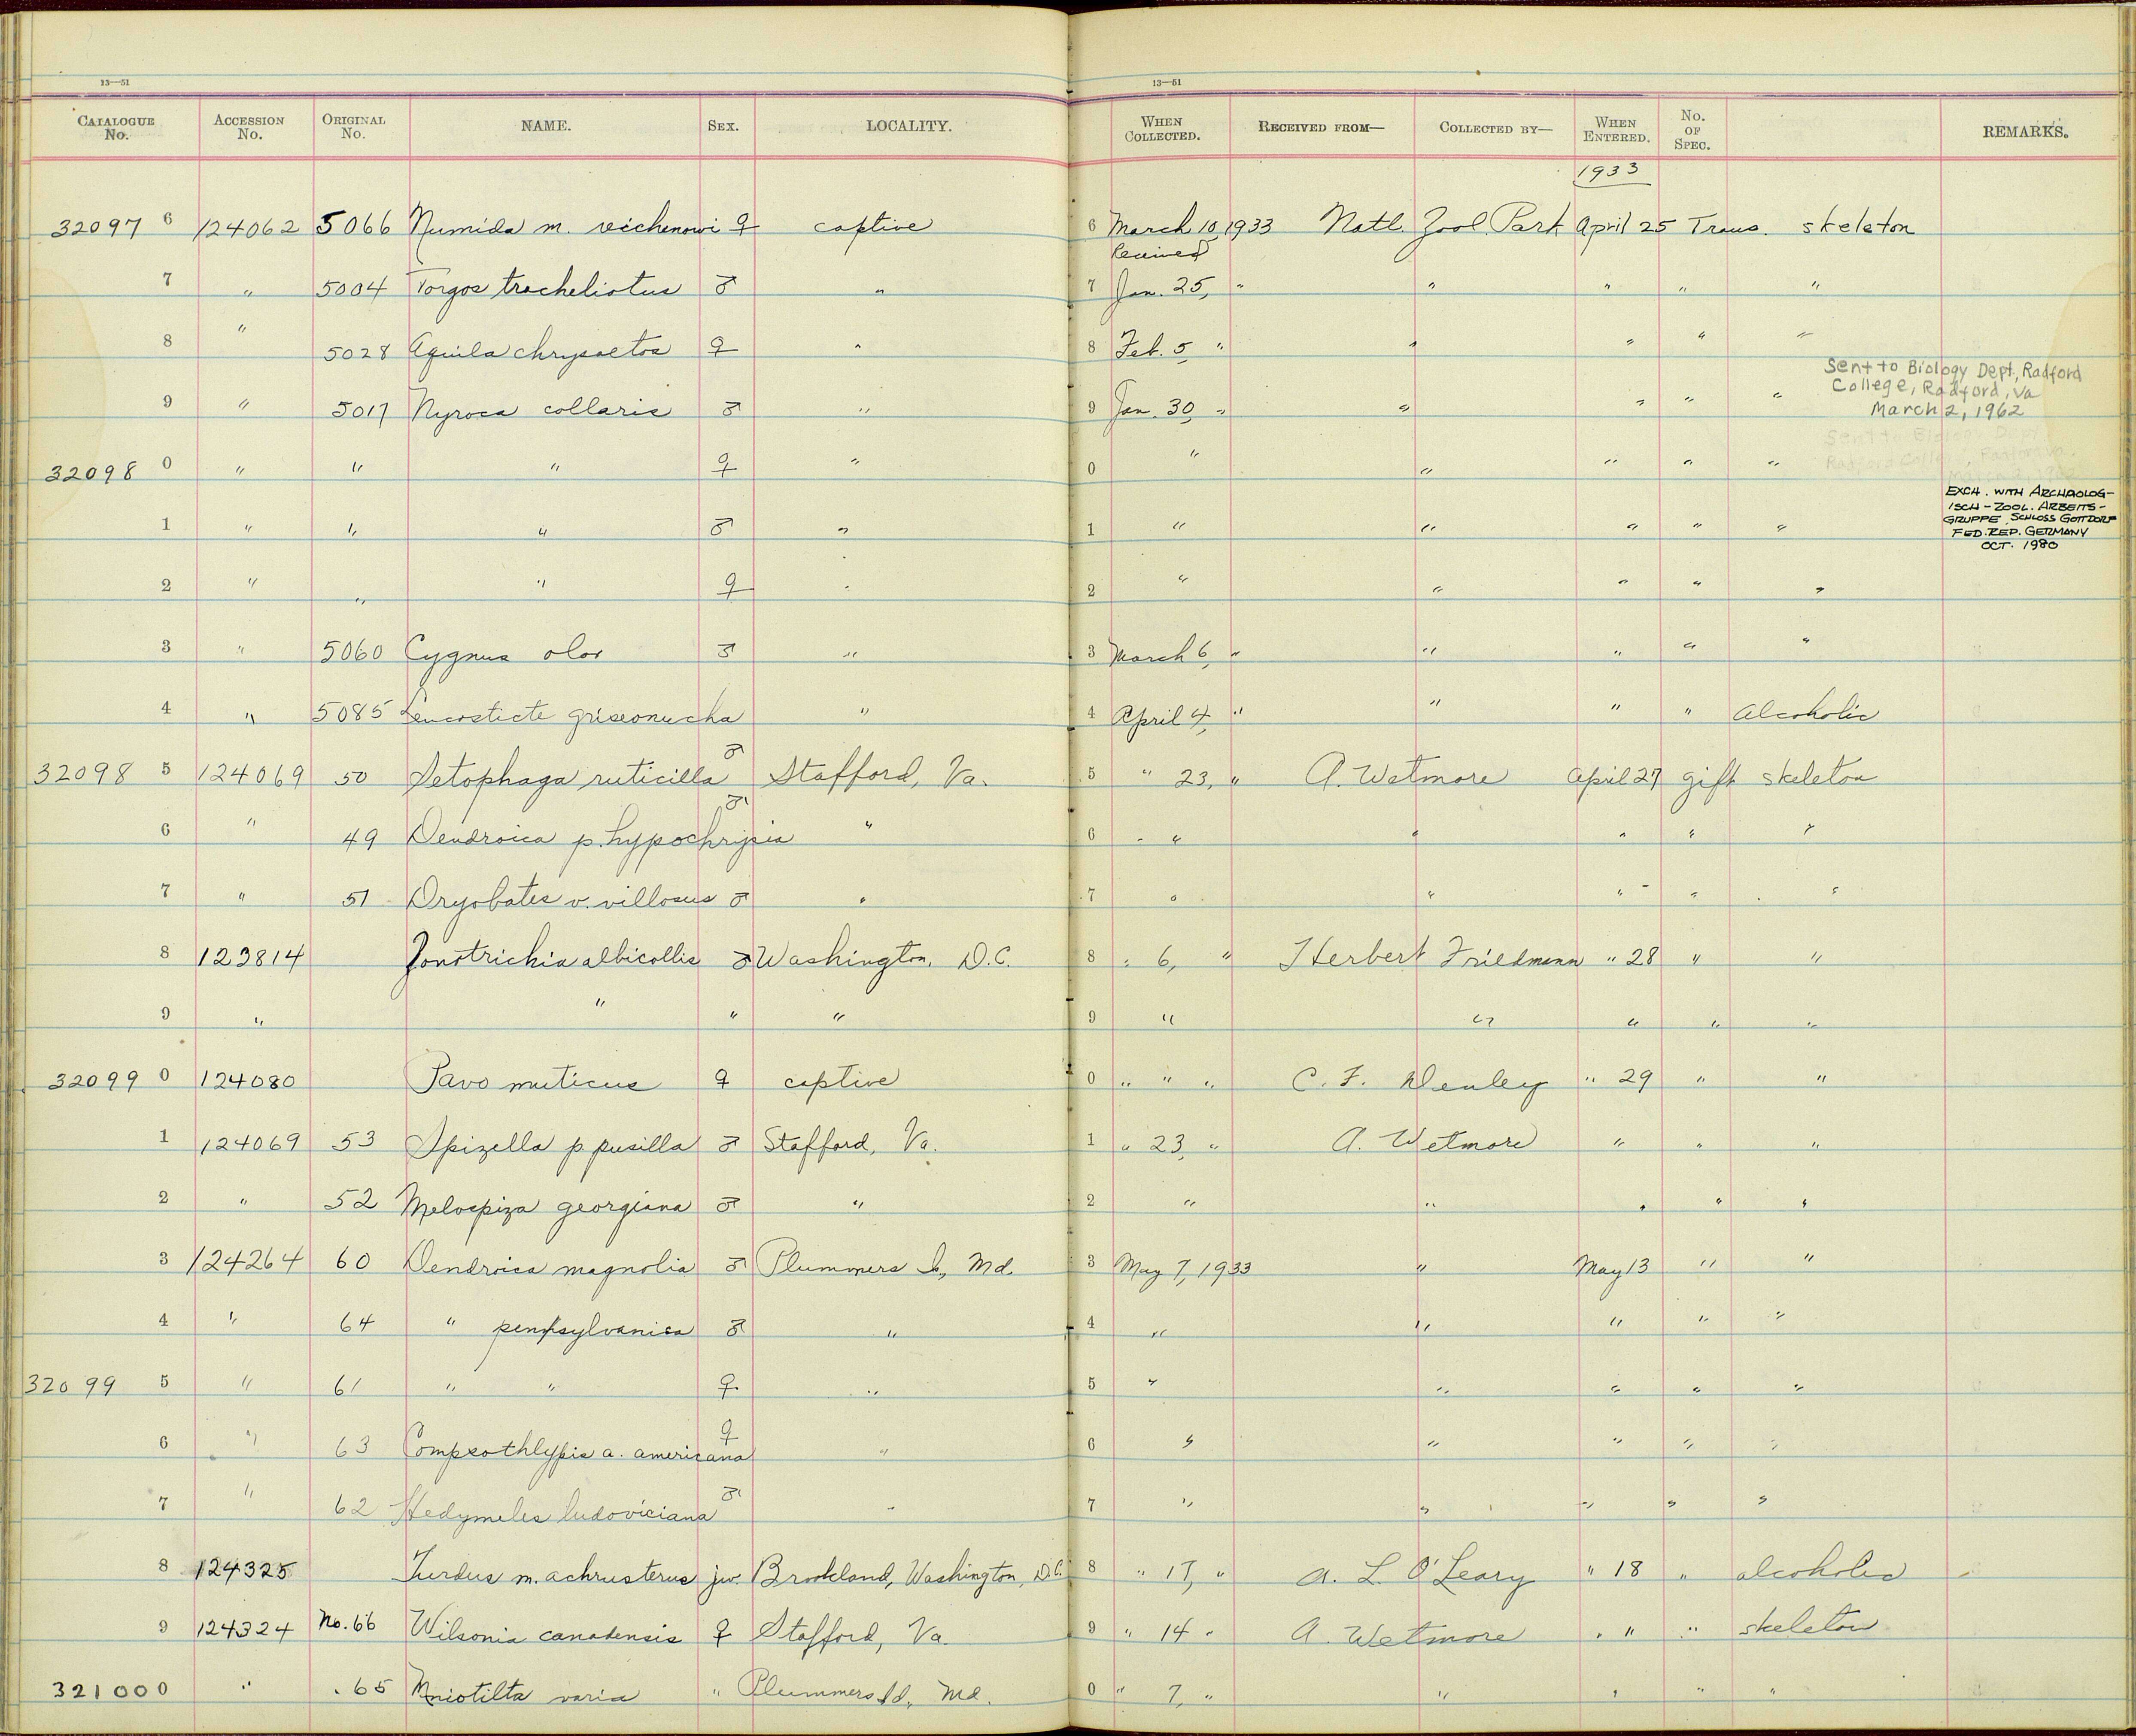 13—51 13—51
CATALOGUE No. ACCESSION No. ORIGINAL No. NAME. SEX. LOCALITY. WHEN COLLECTED. RECEIVED FROM— COLLECTED BY— WHEN ENTERED. No. OF SPEC. REMARKS.
1933
32097 6 124062 5066 Numida m. reichenowi ♀ captive 6 March 10, 1933 Natl. Zool. Park April 25 Trans. skeleton
Received
7 " 5004 Torgos tracheliotus ♂ " 7 Jan. 25, " " " " "
8 " 5028 Aquila chrysaetos ♀ " 8 Feb. 5, " " " " "
Sent to Biology Dept, Radford
College, Radford, Va
March 2, 1962
9 " 5017 Nyroca collaris ♂ " 9 Jan. 30, " " " " "
Sent to Biology Dept
Radford College, Radford, Va.
32098 0 " " " ♀ " 0 " " " " "
EXCH. WITH ARCHAOLOG-
ISCH-ZOOL. ARBEITS-
GRUPPE SCHLOSS GOTTDORF
FED. REP. GERMANY
OCT. 1980
1 " " " ♂ " 1 " " " " "
2 " " " ♀ " 2 " " " " "
3 " 5060 Cygnus olor ♂ " 3 March 6, " " " " "
4 " 5085 Leucosticte griseonucha " 4 April 4, " " " " Alcoholic
32098 5 124069 50 Setophaga ruticilla ♂ Stafford, Va. 5 " 23, " A. Wetmore April 27 gift skeleton
6 " 49 Dendroica p. hypochrysia ♂ " 6 " " " " " "
7 " 51 Dryobates v. villosus ♂ " 7 " " " " "
8 123814 Zonotrichia albicollis ♂ Washington, D.C. 8 " 6, " Herbert Friedmann " 28 " "
9 " " " " 9 " " " " "
32099 0 124080 Pavo muticus ♀ captive 0 " " " C. F. Denley " 29 " "
1 124069 53 Spizella p. pusilla ♂ Stafford, Va. 1 " 23, " A. Wetmore " " "
2 " 52 Melospiza georgiana ♂ " 2 " " " " "
3 124264 60 Dendroica magnolia ♂ Plummers I., Md. 3 May 7, 1933 " May 13 " "
4 " 64 " pensylvanica ♂ " 4 " " " " "
32099 5 " 61 " " ♀ " 5 " " " " "
6 " 63 Compsothlypis a. americana ♀ " 6 " " " " "
7 " 62 Hedymeles ludoviciana ♂ " 7 " " " " "
8 124325 Turdus m. achrusterus juv. Brookland, Washington, D.C. 8 " 17, " A. L. O'Leary " 18 " alcoholic
9 124324 No. 66 Wilsonia canadensis ♀ Stafford, Va. 9 " 14 " A. Wetmore " " " skeleton
32100 0 " 65 Mniotilta varia " Plummers Id., Md. 0 " 7, " " " " "